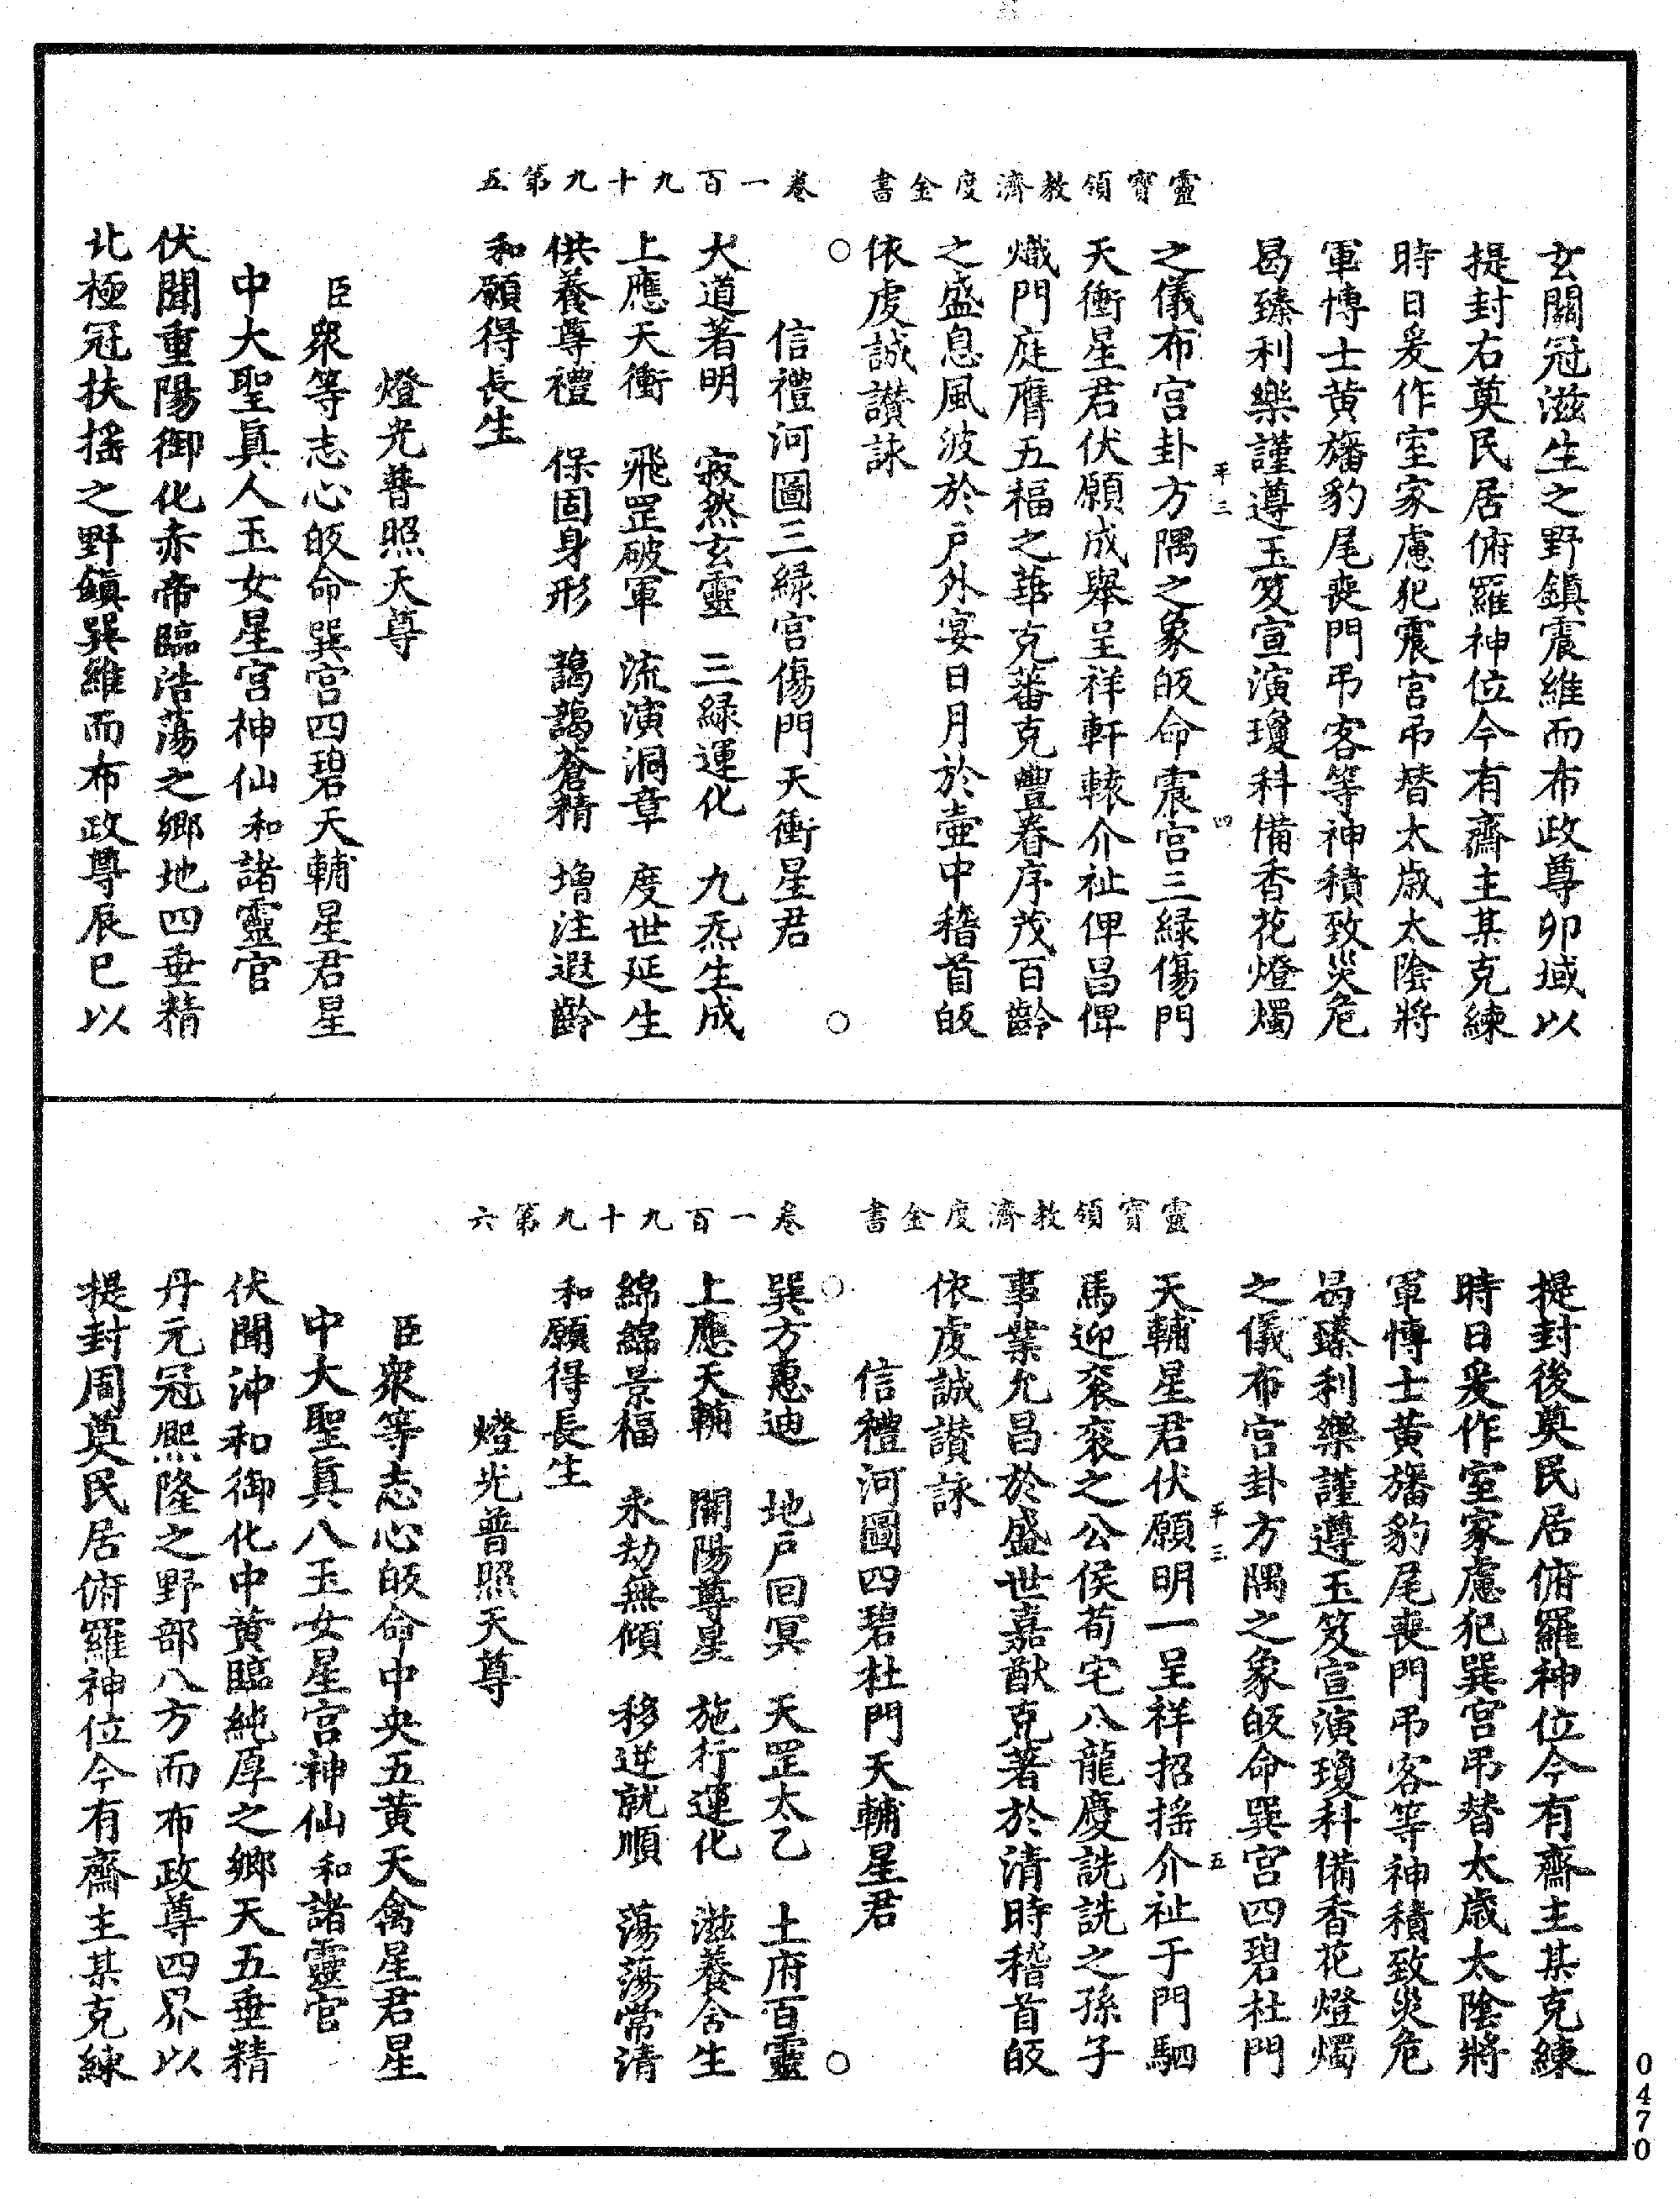 靈寶領教濟度金書　卷一百九十九第五
玄關冠滋生之野鎮震維而布政尊卯域以
提封右奠民居俯羅神位今有齋主某克練
時日爰作室家慮犯震宮吊替太歲太陰將
軍博士黃旛豹尾喪門弔客等神積致災危
曷臻利樂謹遵玉笈宣演瓊科備香花燈燭
平三　四
之儀布宮卦方隅之象皈命震宮三綠傷門
天衝星君伏願成舉呈祥軒轅介祉俾昌俾
熾門庭膺五福之華克蕃克豐眷序茂百齡
之盛息風波於戶外宴日月於壺中稽首皈
依虔誠讚詠
信禮河圖三綠宮傷門天衝星君
大道著明　寂然玄靈　三綠運化　九炁生成
上應天衝　飛罡破軍　流演洞章　度世延生
供養尊禮　保固身形　藹藹蒼精　增注遐齡
和願得長生
燈光普照天尊
臣眾等志心皈命巽宮四碧天輔星君星
中大聖真人玉女星宮神仙和諸靈官
伏聞重陽御化赤帝臨浩蕩之鄉地四垂精
北極冠扶搖之野鎮巽維而布政尊辰巳以
靈寶領教濟度金書　卷一百九十九第六
提封後奠民居俯羅神位今有齋主某克練
時日爰作室家慮犯巽宮吊替太歲太陰將
軍博士黃旛豹尾喪門弔客等神積致災危
曷臻利樂謹遵玉笈宣演瓊科備香花燈燭
之儀布宮卦方隅之象皈命巽宮四碧杜門
平三　五
天輔星君伏願明一呈祥招搖介祉于門駟
馬迎袞袞之公侯荀宅八龍慶詵詵之孫子
事業允昌於盛世嘉猷克著於清時稽首皈
依虔誠讚詠
信禮河圖四碧杜門天輔星君
巽方惠迪　地戶回冥　天罡太乙　土府百靈
上應天輔　開陽尊星　施行運化　滋養含生
綿綿景福　永劫無傾　移逆就順　蕩蕩常清
和願得長生
燈光普照天尊
臣眾等志心皈命中央五黃天禽星君星
中大聖真人玉女星宮神仙和諸靈官
伏聞沖和御化中黃臨純厚之鄉天五垂精
丹元冠熙隆之野部八方而布政尊四界以
提封周奠民居俯羅神位今有齋主某克練
0470